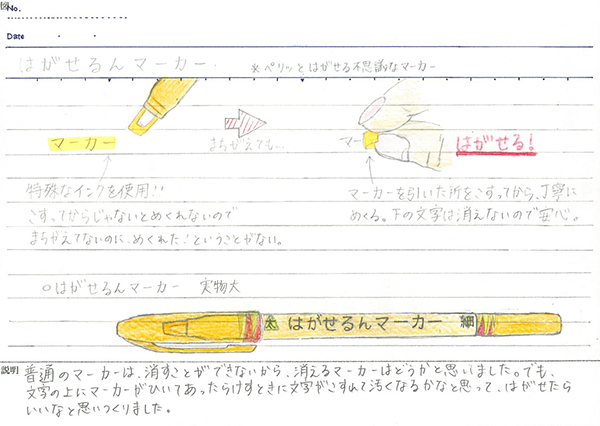 図
No.
Date
はがせるんマーカー.
※ペリッとはがせる不思議なマーカー
マーカー
まちがえても...
マー
はがせる!
特殊なインクを使用!!
こすってからじゃないとめくれないので
まちがえてないのに、めくれた!ということがない。
マーカーを引いた所をこすってから、丁寧に
めくる。下の文字は消えないので安心。
○はがせるんマーカー 実物大
太 はがせるんマーカー 細
説明
普通のマーカーは、消すことができないから、消えるマーカーはどうかと思いました。でも、
文字の上にマーカーがひいてあったらけすときに文字がこすれて汚くなるかなと思って、はがせたら
いいなと思いつくりました。